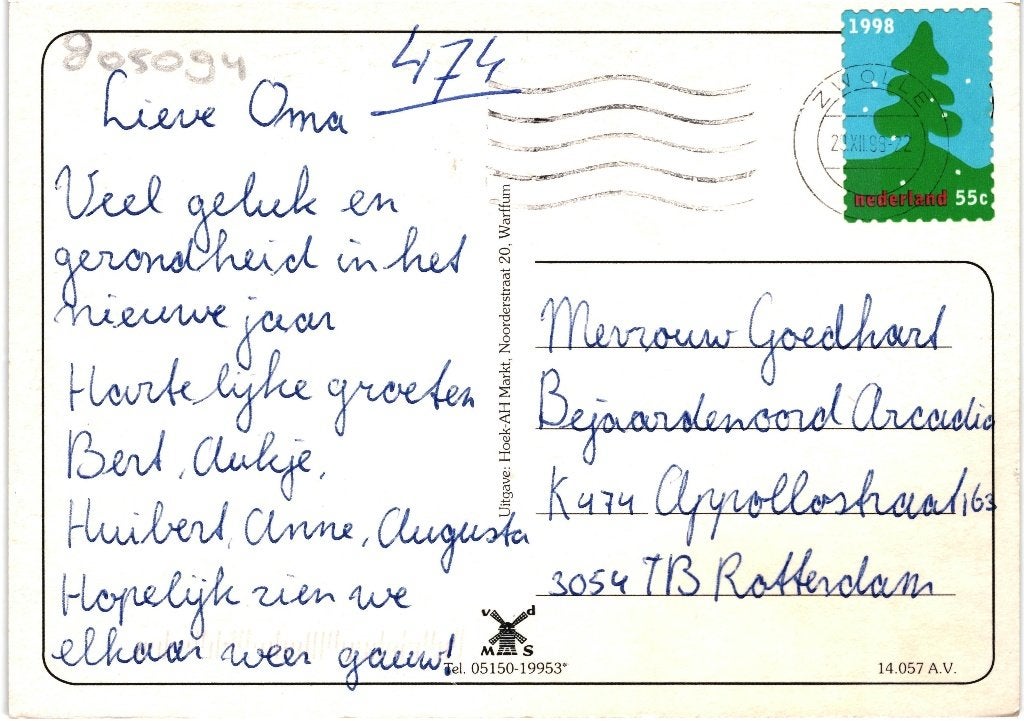 805094
474
Lieve Oma
Veel geluk en
gezondheid in het
nieuwe jaar
Hartelijke groeten
Bert, Aukje,
Huibert, Anne, Augusta
Hopelijk zien we
elkaar weer gauw!
Uitgave: Hoek-AH Markt, Noorderstraat 20, Warffum
1998
ZWOLLE
nederland 55c
Mevrouw Goedhart
Bejaardenoord Arcadia
K474 Appollostraat 163
3054 TB Rotterdam
v d
M S
Tel. 05150-19953*
14.057 A.V.